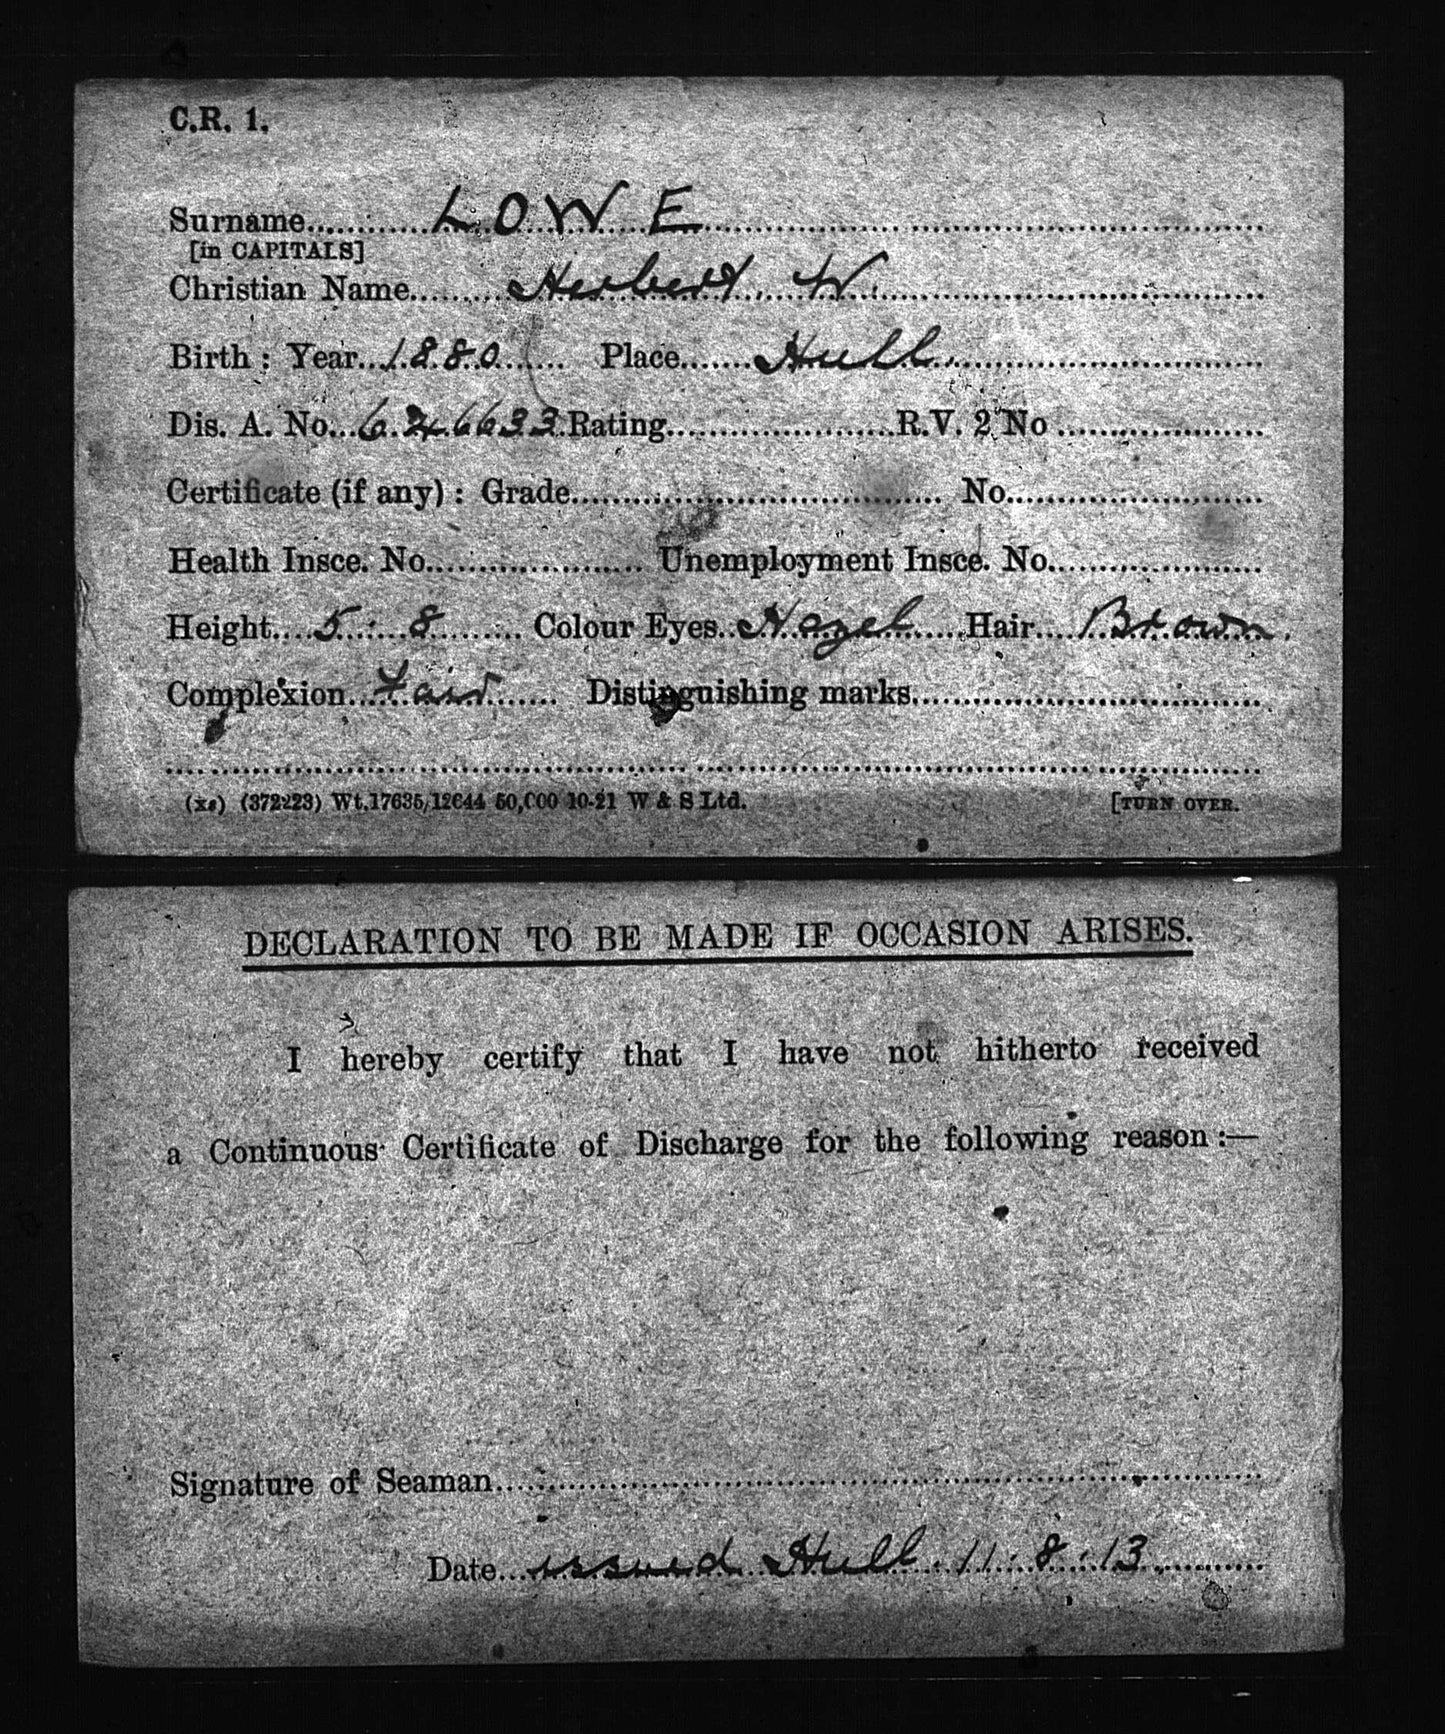 C.R. 1.
Surname LOWE
[in CAPITALS]
Christian Name Herbert W.
Birth : Year 1880 Place Hull
Dis. A. No. 6 633 Rating R.V. 2 No
Certificate (if any) : Grade No.
Health Insce. No. Unemployment Insce. No.
Height 5 . 8 Colour Eyes Hazel Hair Brown.
Complexion Fair Distinguishing marks
(372223) Wt.17635/12644 50,000 10-21 W & S Ltd. [TURN OVER.
DECLARATION TO BE MADE IF OCCASION ARISES.
I hereby certify that I have not hitherto received
a Continuous Certificate of Discharge for the following reason :—
Signature of Seaman
Date issued Hull. 11. 8. 13